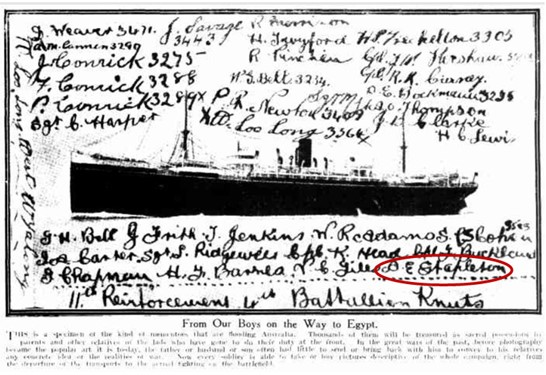 J. Weaver 3471. J. Savage 3443 R Morrison
3299 H. Twyford W.S. Treckelton 3305
J Conrick 3275 R
F. Conrick 3288 W.S. Bell 3254. Cpl. R.K.
P. Conrick 3289x P. R. Newton 3409 Thompson
Sgt C. Harper W. Loo Long 3566 J. L. Clarke
H C Lewis
W. Loo Long West Wyalong
J. H. Bell G Frith J. Jenkins W. R. Adams S. Cohen
Joe Carter Sgt. S. Ridgewell Cpl K. Head
B Chapman H. F. Barnes V. C. Gill D. E Stapleton
11th Reinforcement 4th Battallion Knuts
From Our Boys on the Way to Egypt.
THIS is a specimen of the kind of mementoes that are flooding Australia. Thousands of them will be treasured as sacred possessions by
parents and other relatives of the lads who have gone to do their duty at the front. In the great wars of the past, before photography
became the popular art it is today, the father or husband or son often had little to send or bring back with him to convey to his relatives
any concrete idea of the realities of war. Now every soldier is able to take or buy pictures descriptive of the whole campaign, right from
the departure of the transports to the actual fighting on the battlefield.